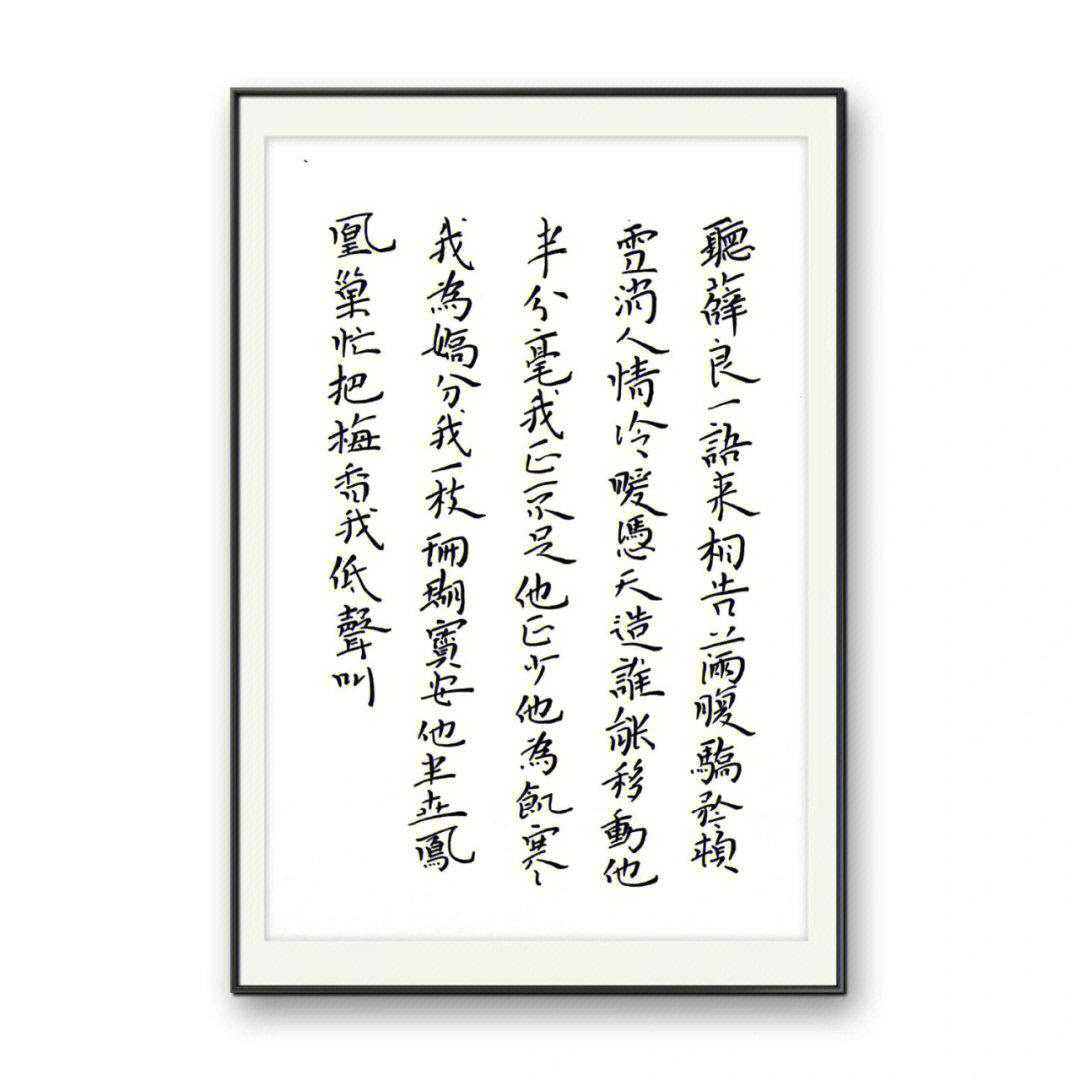 聽薛良一語来相告滿腹驕矜頓
雪消人情冷暖憑天造誰能移動他
半分毫我正不足他正少他為飢寒
我為嬌分我一枝珊瑚寶安他半世鳳
凰巢忙把梅香我低聲叫